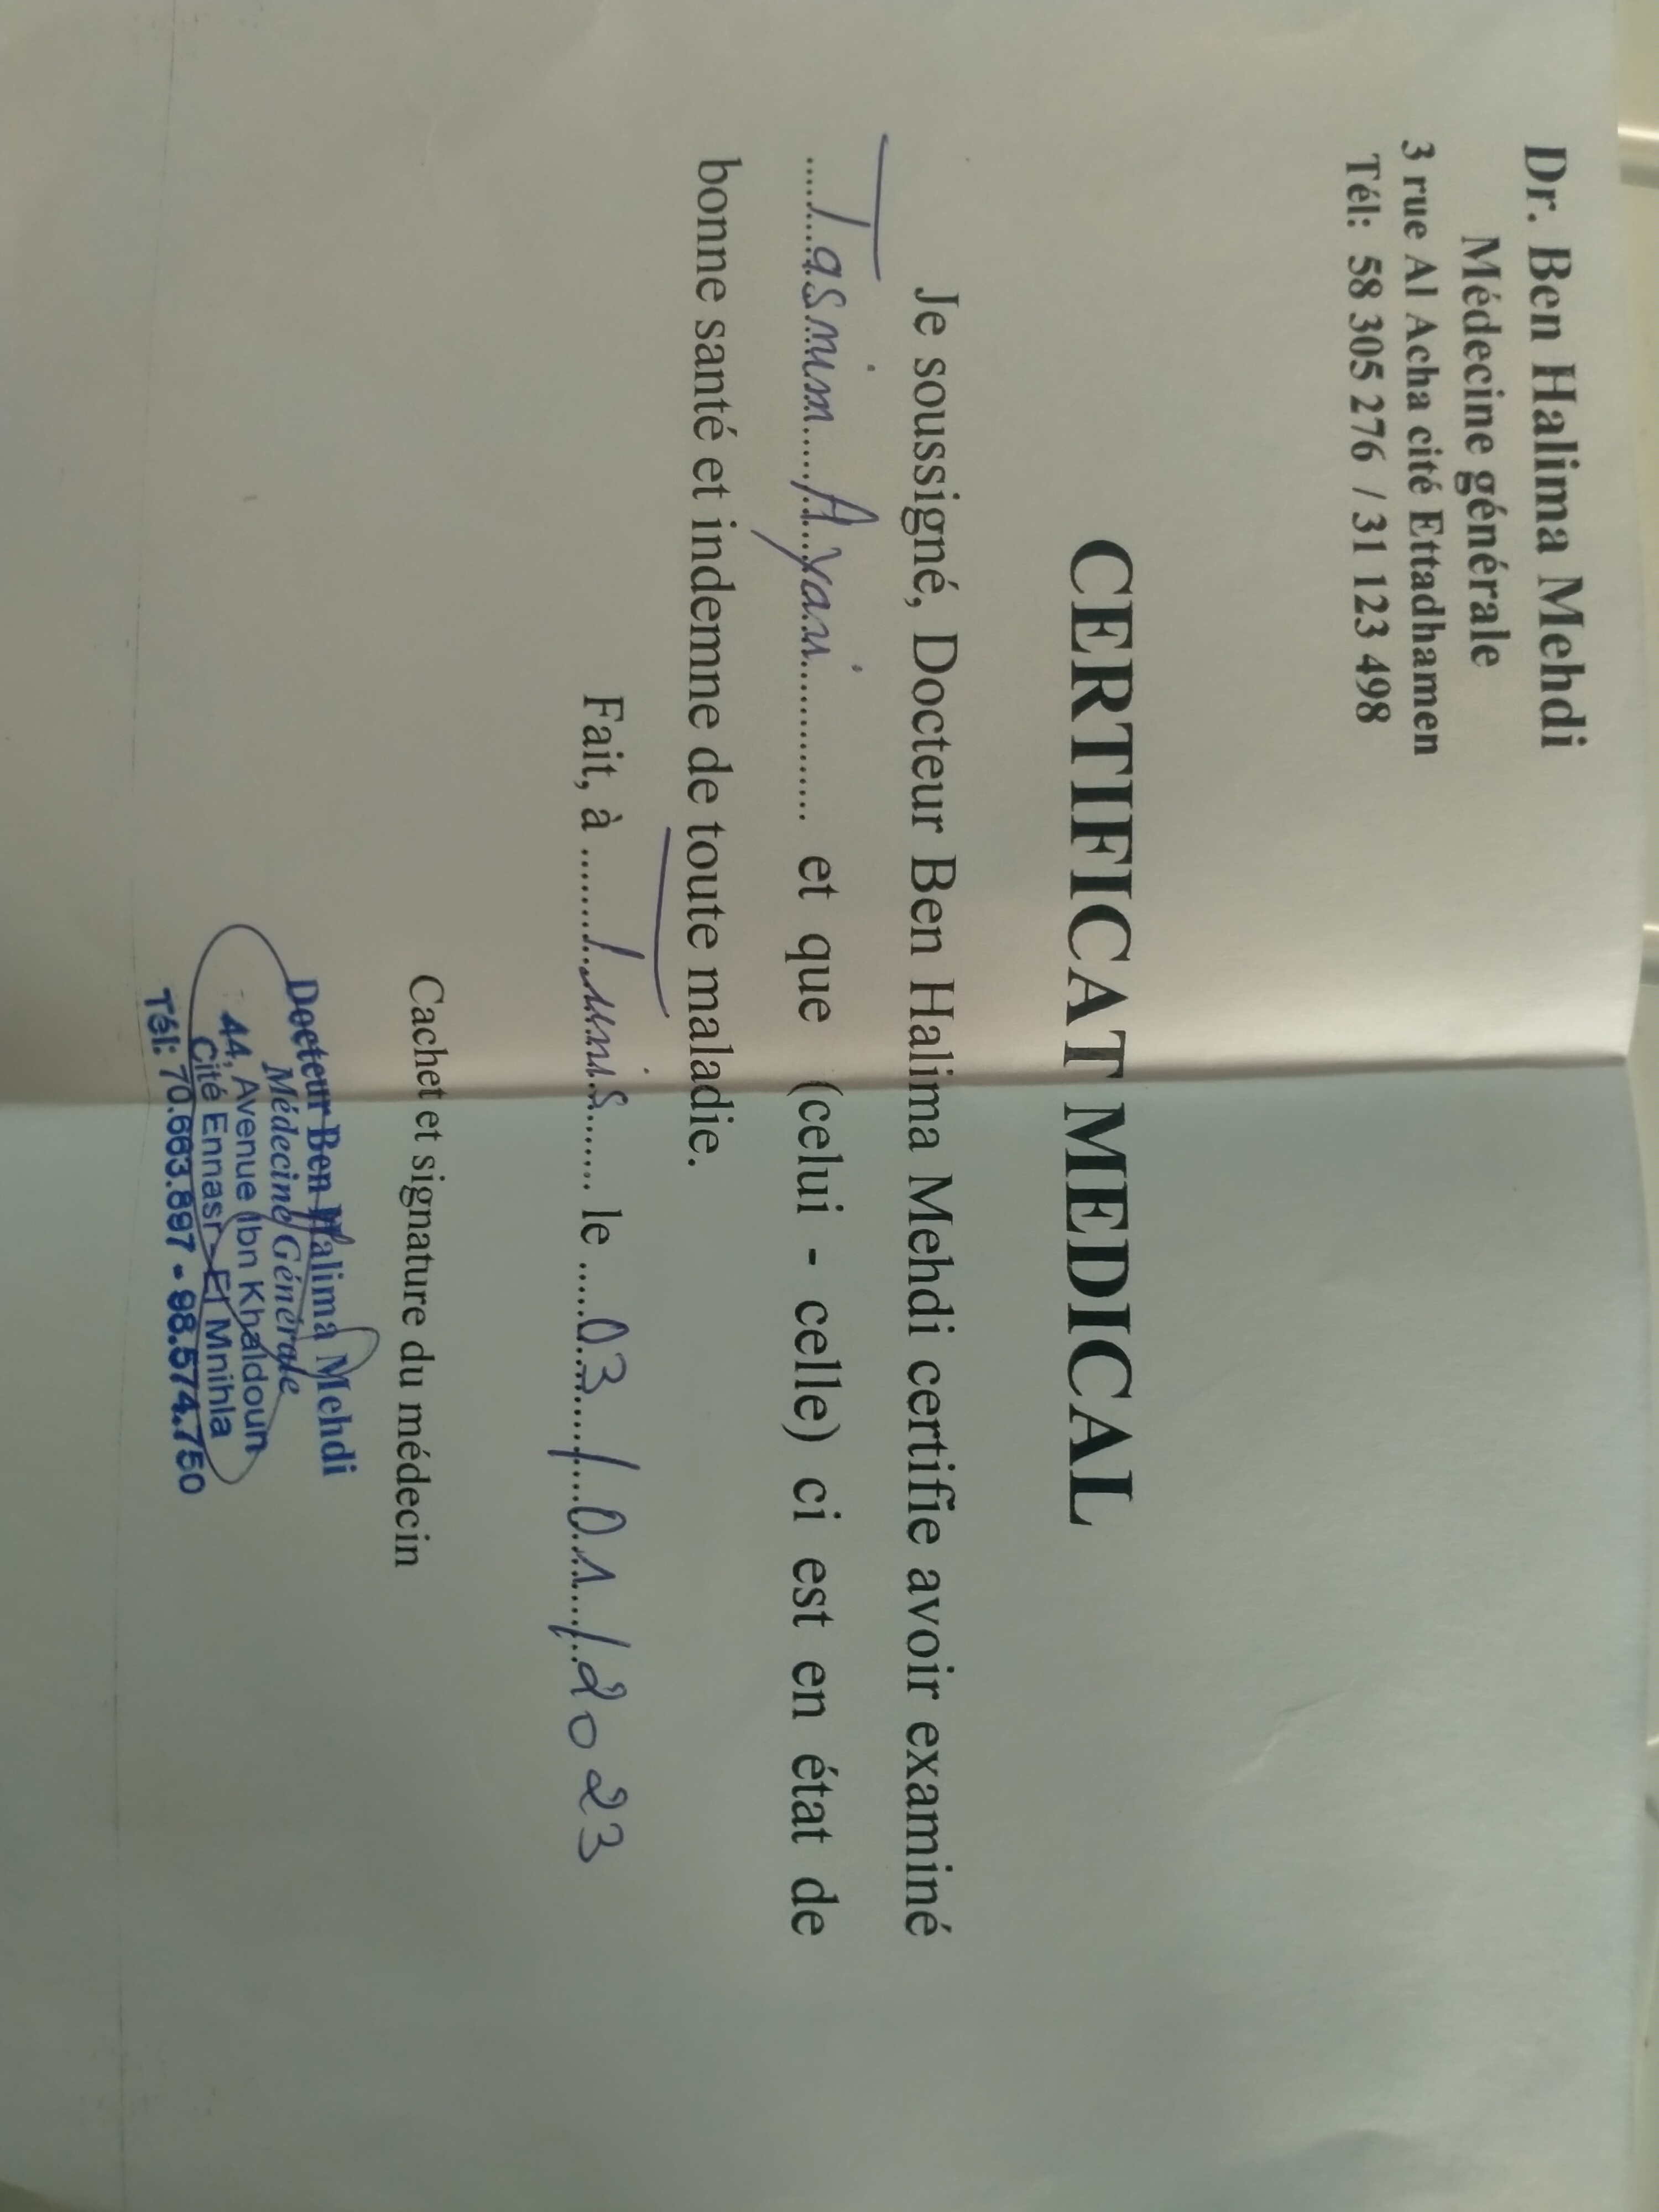 Dr. Ben Halima Mehdi
Médecine générale
3 rue Al Acha cité Ettadhamen
Tél: 58 305 276 / 31 123 498
CERTIFICAT MEDICAL
Je soussigné, Docteur Ben Halima Mehdi certifie avoir examiné
Tasnim Ayari et que (celui - celle) ci est en état de
bonne santé et indemne de toute maladie.
Fait, à Tunis le 03/01/2023
Cachet et signature du médecin
Docteur Ben Halima Mehdi
Médecine Générale
44, Avenue Ibn Khaldoun
Cité Ennasr - El Mnihla
Tél: 70.663.897 - 98.574.750